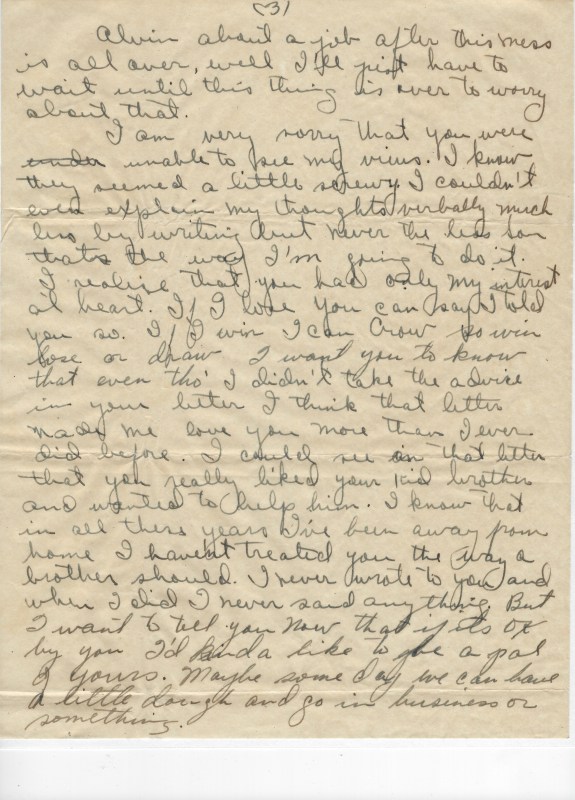 (3)
Alvin about a job after this mess
is all over, well I'll just have to
wait until this thing is over to worry
about that.
I am very sorry that you were
under unable to see my views. I know
they seemed a little screwy. I couldn't
even explain my thoughts verbally much
less by writing but never the less son
thats the way I'm going to do it.
I realize that you had only my intrest
at heart. If I lose you can say I told
you so. If I win I can Crow so win
lose or draw I want you to know
that even tho' I didn't take the advice
in your letter I think that letter
made me love you more than I ever
did before. I could see in that letter
that you really liked your kid brother
and wanted to help him. I know that
in all thers years I've been away from
home I haven't treated you the way a
brother should. I never wrote to you and
when I did I never said anything. But
I want to tell you now that if its OK
by you I'd kinda like to be a pal
of yours. Maybe some day we can have
a little dough and go in business or
something.